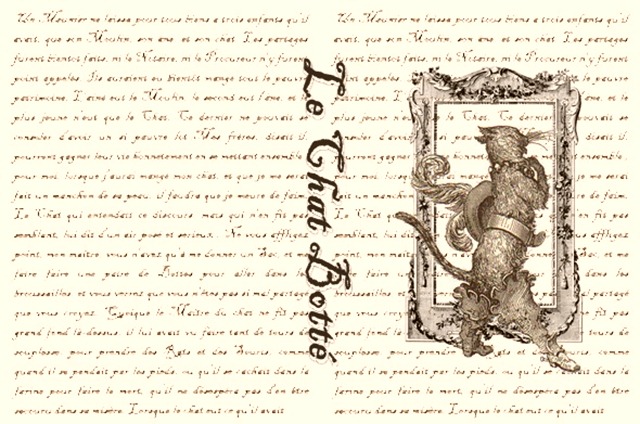 Un Meunier ne laissa pour tous biens a trois enfants qu'il
avait, que son Moulin, son ane, et son chat. Les partages
furent bientot faits, ni le Notaire, ni le Procureur n'y furent
point appeles. Ils auraient eu bientot mange tout le pauvre
patrimoine. L'aine eut le Moulin, le second eut l'ane, et le
plus jeune n'eut que le Chat. Ce dernier ne pouvait se
consoler d'avoir un si pauvre lot. Mes freres, disait il,
pourront gagner leur vie honnetement en se mettant ensemble,
pour moi, lorsque j'aurai mange mon chat, et que je me serai
fait un manchon de sa peau, il faudra que je meure de faim.
Le Chat qui entendait ce discours, mais qui n'en fit pas
semblant, lui dit d'un air pose et serieux: Ne vous affligez
point, mon maitre, vous n'avez qu'a me donner un Sac, et me
faire faire une paire de Bottes pour aller dans les
broussailles, et vous verrez que vous n'etes pas si mal partage
que vous croyez. Quoique le Maitre du chat ne fit pas
grand fond la dessus, il lui avait vu faire tant de tours de
souplesse, pour prendre des Rats et des Souris, comme
quand il se pendait par les pieds, ou qu'il se cachait dans la
farine pour faire le mort, qu'il ne desespera pas d'en etre
secouru dans sa misere. Lorsque le chat eut ce qu'il avait
Le Chat Botté
Un Meunier ne laissa pour tous biens a trois enfants qu'il
avait, que son Moulin, son ane, et son chat. Les partages
furent bientot faits, ni le Notaire, ni le Procureur n'y furent
point appeles.
patrimoine.
plus jeune n'eut que le Chat. Ce dernier ne pouvait se
consoler d'avoir
pourront gagner
pour moi, lorsque
fait un manchon
Le Chat qui
semblant, lui dit
point, mon maitre
faire faire une
broussailles, et
que vous croyez.
grand fond la dessus,
souplesse, pour prendre des Rats et des Souris, comme
quand il se pendait par les pieds, ou qu'il se cachait dans la
farine pour faire le mort, qu'il ne desespera pas d'en etre
secouru dans sa misere. Lorsque le chat eut ce qu'il avait